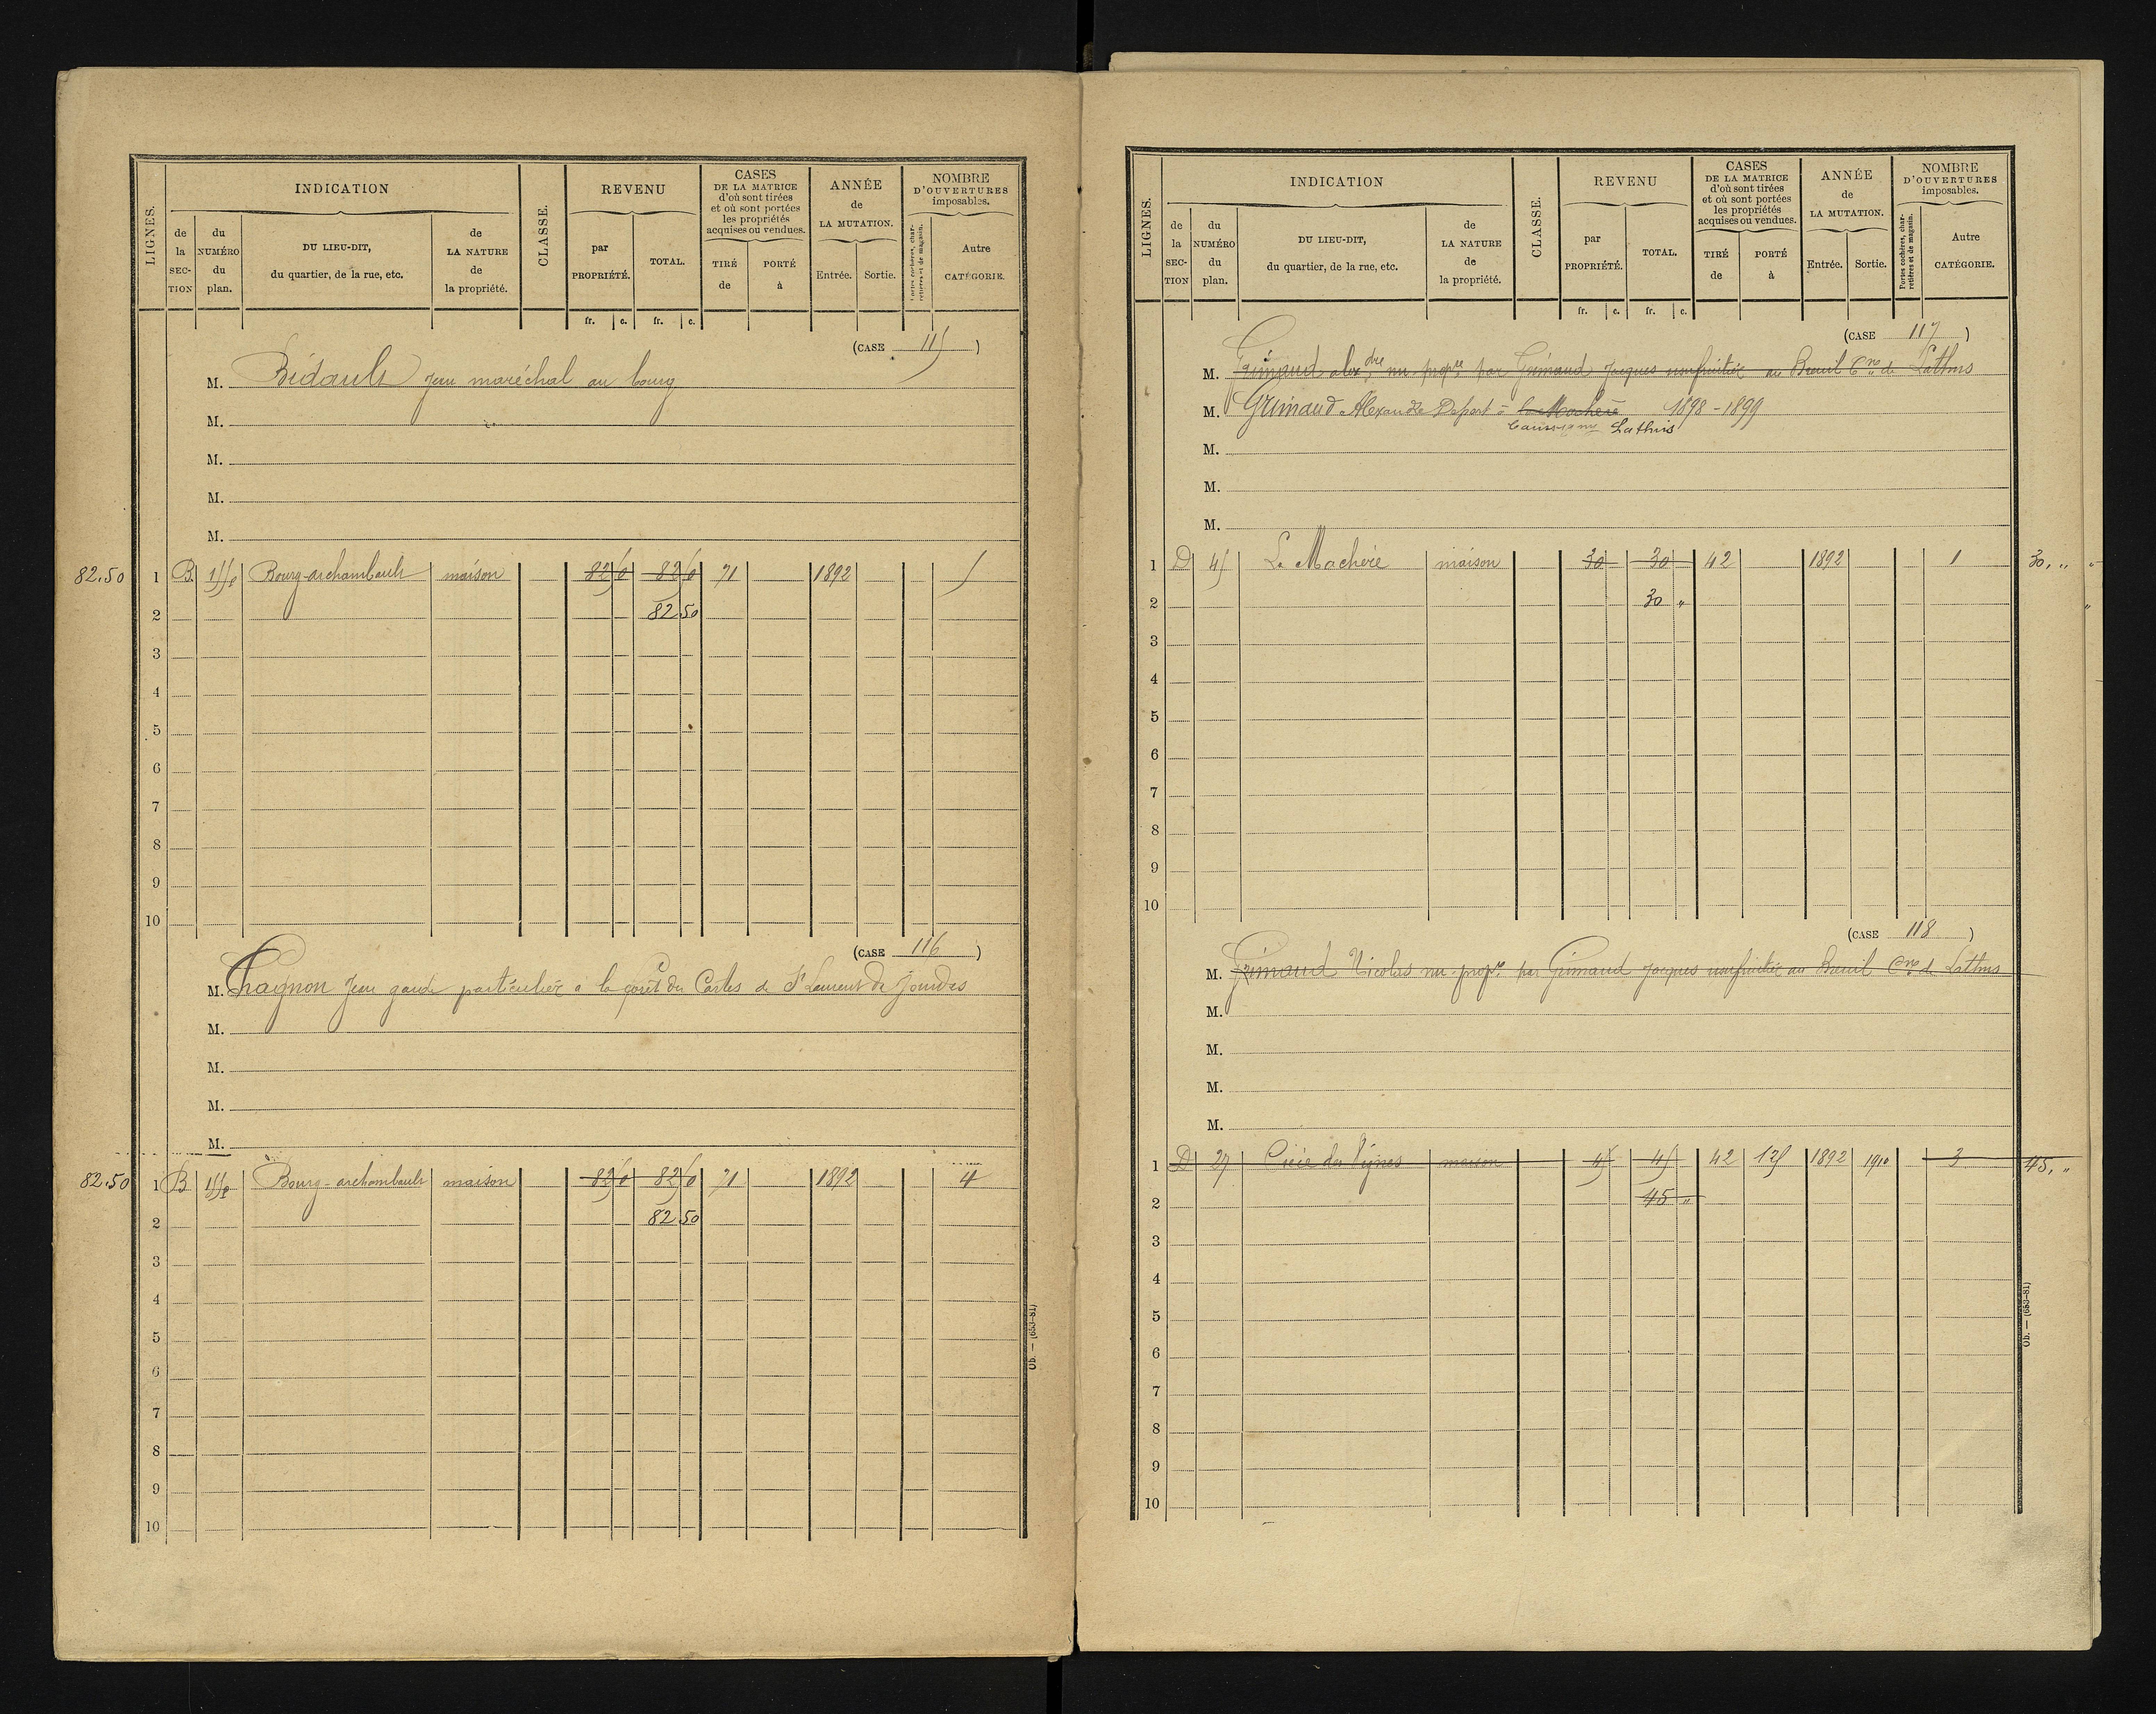 LIGNES.
INDICATION
de la SECTION
du NUMÉRO du plan.
DU LIEU-DIT, du quartier, de la rue, etc.
de LA NATURE de la propriété.
CLASSE.
REVENU
par PROPRIÉTÉ.
TOTAL.
CASES DE LA MATRICE d'où sont tirées et où sont portées les propriétés acquises ou vendues.
TIRÉ de
PORTÉ à
ANNÉE de LA MUTATION.
Entrée.
Sortie.
NOMBRE D'OUVERTURES imposables.
Portes cochères, charretières et de magasin.
Autre CATÉGORIE.
fr. c. fr. c.
(CASE 115)
M. Bidault Jean maréchal au bourg
M.
M.
M.
M.
82.50 1 B Bourg-archambault maison 82 50 82 50 71 1892 5
2 82 50
3
4
5
6
7
8
9
10
(CASE 116)
M. Chagnon Jean garde particulier à la forêt des Cartes de St Laurent de Jourdes
M.
M.
M.
M.
82.50 1 B Bourg-archambault maison 82 50 82 50 71 1892 4
2 82 50
3
4
5
6
7
8
9
10
Ob. — (653-81)
LIGNES.
INDICATION
de la SECTION
du NUMÉRO du plan.
DU LIEU-DIT, du quartier, de la rue, etc.
de LA NATURE de la propriété.
CLASSE.
REVENU
par PROPRIÉTÉ.
TOTAL.
CASES DE LA MATRICE d'où sont tirées et où sont portées les propriétés acquises ou vendues.
TIRÉ de
PORTÉ à
ANNÉE de LA MUTATION.
Entrée.
Sortie.
NOMBRE D'OUVERTURES imposables.
Portes cochères, charretières et de magasin.
Autre CATÉGORIE.
fr. c. fr. c.
(CASE 117)
M. Grimaud alexdre nu propre par Grimaud Jacques usufruitier au Breuil Cne de Lathus
M. Grimaud Alexandre Deport à la Machère 1898-1899
Lathus
M.
M.
M.
1 D 45 La Machère maison 30 30 42 1892 1 30, "
2 30 "
3
4
5
6
7
8
9
10
(CASE 118)
M. Grimaud Nicolas nu-propre par Grimaud Jacques usufruitier au Breuil Cne de Lathus
M.
M.
M.
M.
1 D 27 des Vignes maison 45 45 42 125 1892 1910 3 45, "
2 45 "
3
4
5
6
7
8
9
10
Ob. — (653-81)